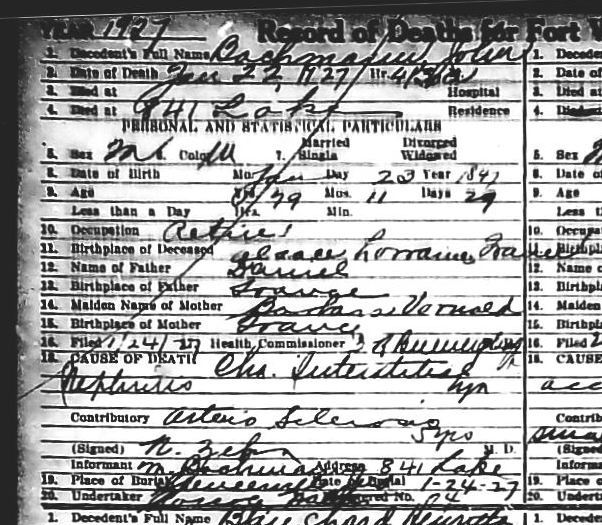 YEAR 1927 Record of Deaths for Fort
1. Decedent's Full Name Bachmann John
2. Date of Death Jan 22, 1927 Hr.
3. Died at Hospital
4. Died at 841 Lake Residence
PERSONAL AND STATISTICAL PARTICULARS
Married Divorced
5. Sex M 6. Color W 7. Single Widowed
8. Date of Birth Mo. Jan Day 23 Year 1847
9. Age Yrs. 79 Mos. 11 Days 29
Less than a Day Hrs. Min.
10. Occupation Retired
11. Birthplace of Deceased Alsace Lorraine France
12. Name of Father Daniel
13. Birthplace of Father France
14. Maiden Name of Mother Barbara
15. Birthplace of Mother France
16. Filed 1/24/27 Health Commissioner
18. CAUSE OF DEATH Chr. Interstitial
Nephritis
Contributory Arterio Sclerosis
5 yrs
(Signed) N. M. D.
Informant M. Bachmann Address 841 Lake
19. Place of Burial Date of Burial 1-24-27
20. Undertaker No.
1. Decedent's Full Name
1. Decede
2. Date of
3. Died at
4. Died at
5. Sex
8. Date of
9. Age
Less t
10. Occupa
11. Birthpl
12. Name o
13. Birthpl
14. Maiden
15. Birthpl
16. Filed
18. CAUSE
acc
Contrib
(Signed)
Informa
19. Place o
20. Underta
1. Decede